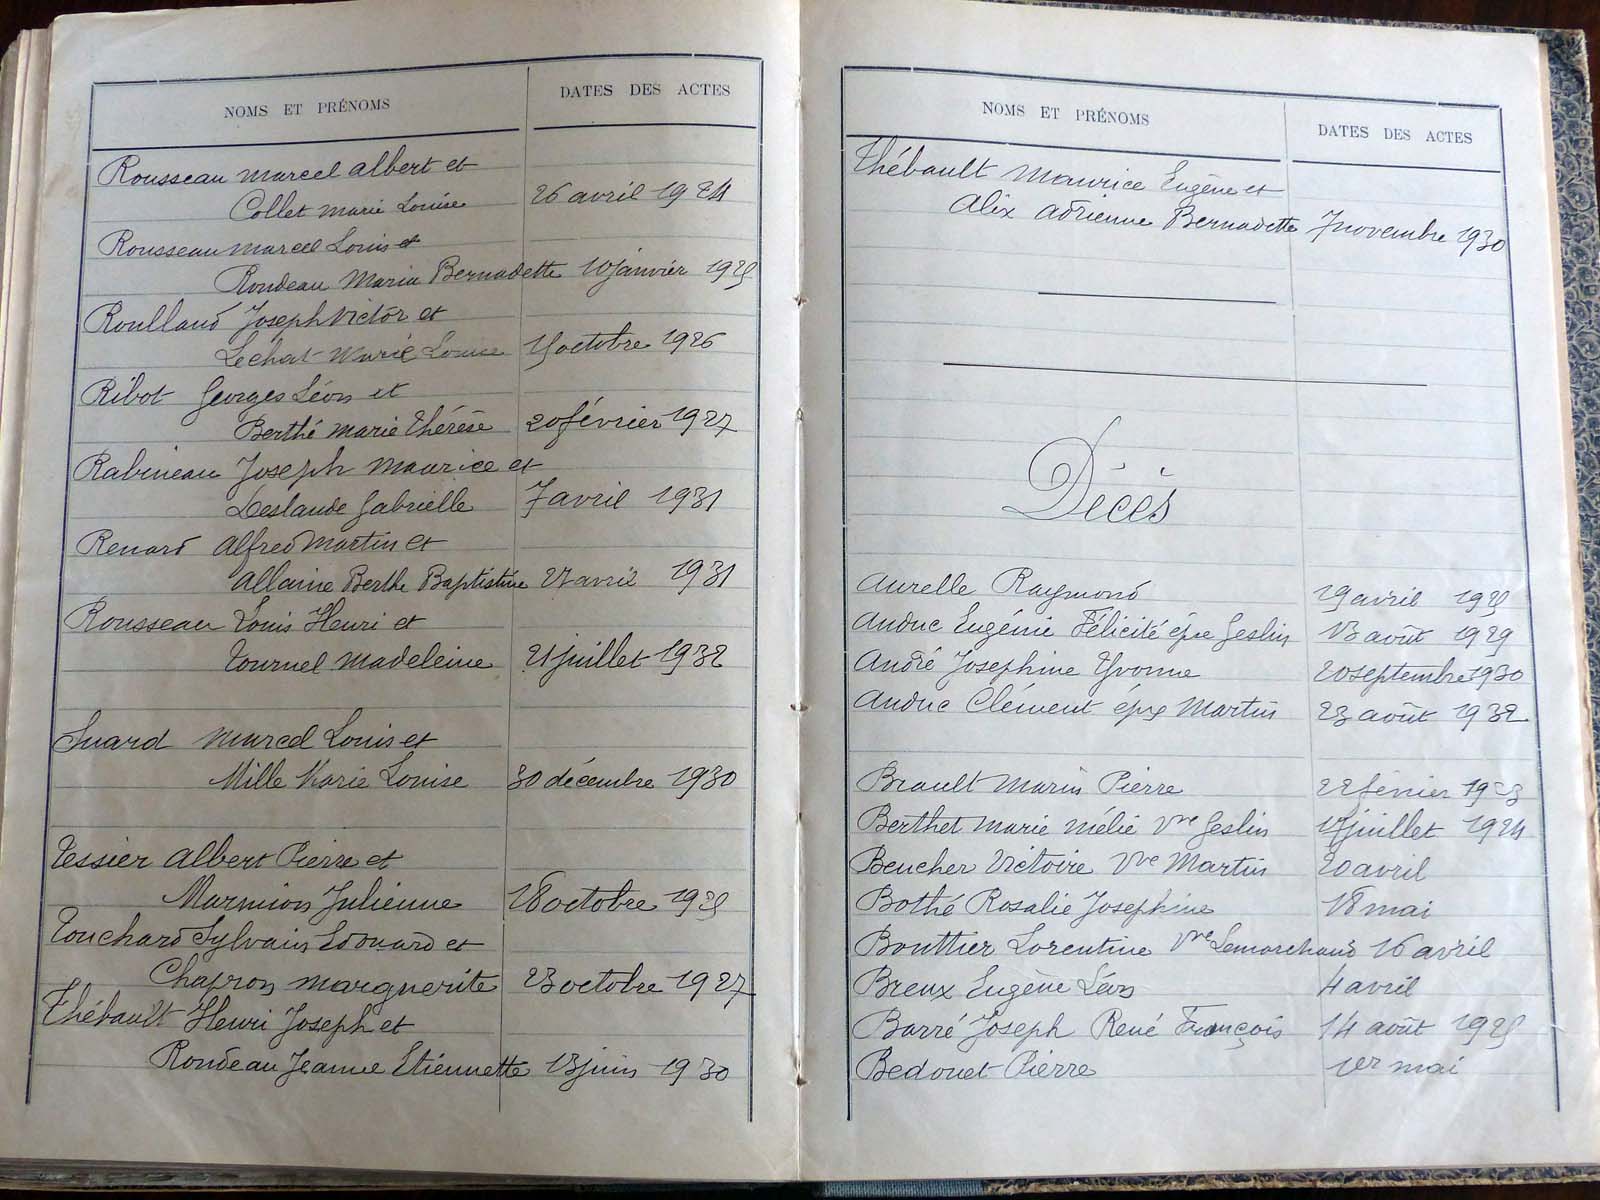 NOMS ET PRÉNOMS DATES DES ACTES
Rousseau Marcel Albert et
Collet Marie Louise 26 avril 1924
Rousseau Marcel Louis et
Rondeau Maria Bernadette 10 janvier 1925
Roulland Joseph Victor et
Lechat Marie Louise 15 octobre 1926
Ribot Georges Léon et
Berthé Marie Thérèse 20 février 1927
Rabineau Joseph Maurice et
Deslande Gabrielle 7 avril 1931
Renard Alfred Martin et
Allaine Berthe Baptistine avril 1931
Rousseau Louis Henri et
Tournel Madeleine 21 juillet 1932
Suard Marcel Louis et
Mille Marie Louise 30 décembre 1930
Tessier Albert Pierre et
Marmion Julienne 18 octobre 1925
Touchard Sylvain Edouard et
Chapron Marguerite 23 octobre 1927
Thébault Henri Joseph et
Rondeau Jeanne Etiennette 13 juin 1930
NOMS ET PRÉNOMS DATES DES ACTES
Thébault Maurice Eugène et
Alix Adrienne Bernadette 7 novembre 1930
Décès
Aurelle Raymond 19 avril 1925
Anduc Eugénie Félicité épse Geslin 13 août 1929
André Josephine Yvonne 20 septembre 1930
Anduc Clément épx Martin 23 août 1932
Brault Marin Pierre 22 février 1923
Berthet Marie Mélie Vve Geslin 17 juillet 1924
Beucher Victoire Vve Martin 20 avril
Bothé Rosalie Josephine 18 mai
Bouttier Lorentine Vve Lemarchand 16 avril
Breux Eugène Léon 4 avril
Barré Joseph René François 14 août 1925
Bedouet Pierre 1er mai